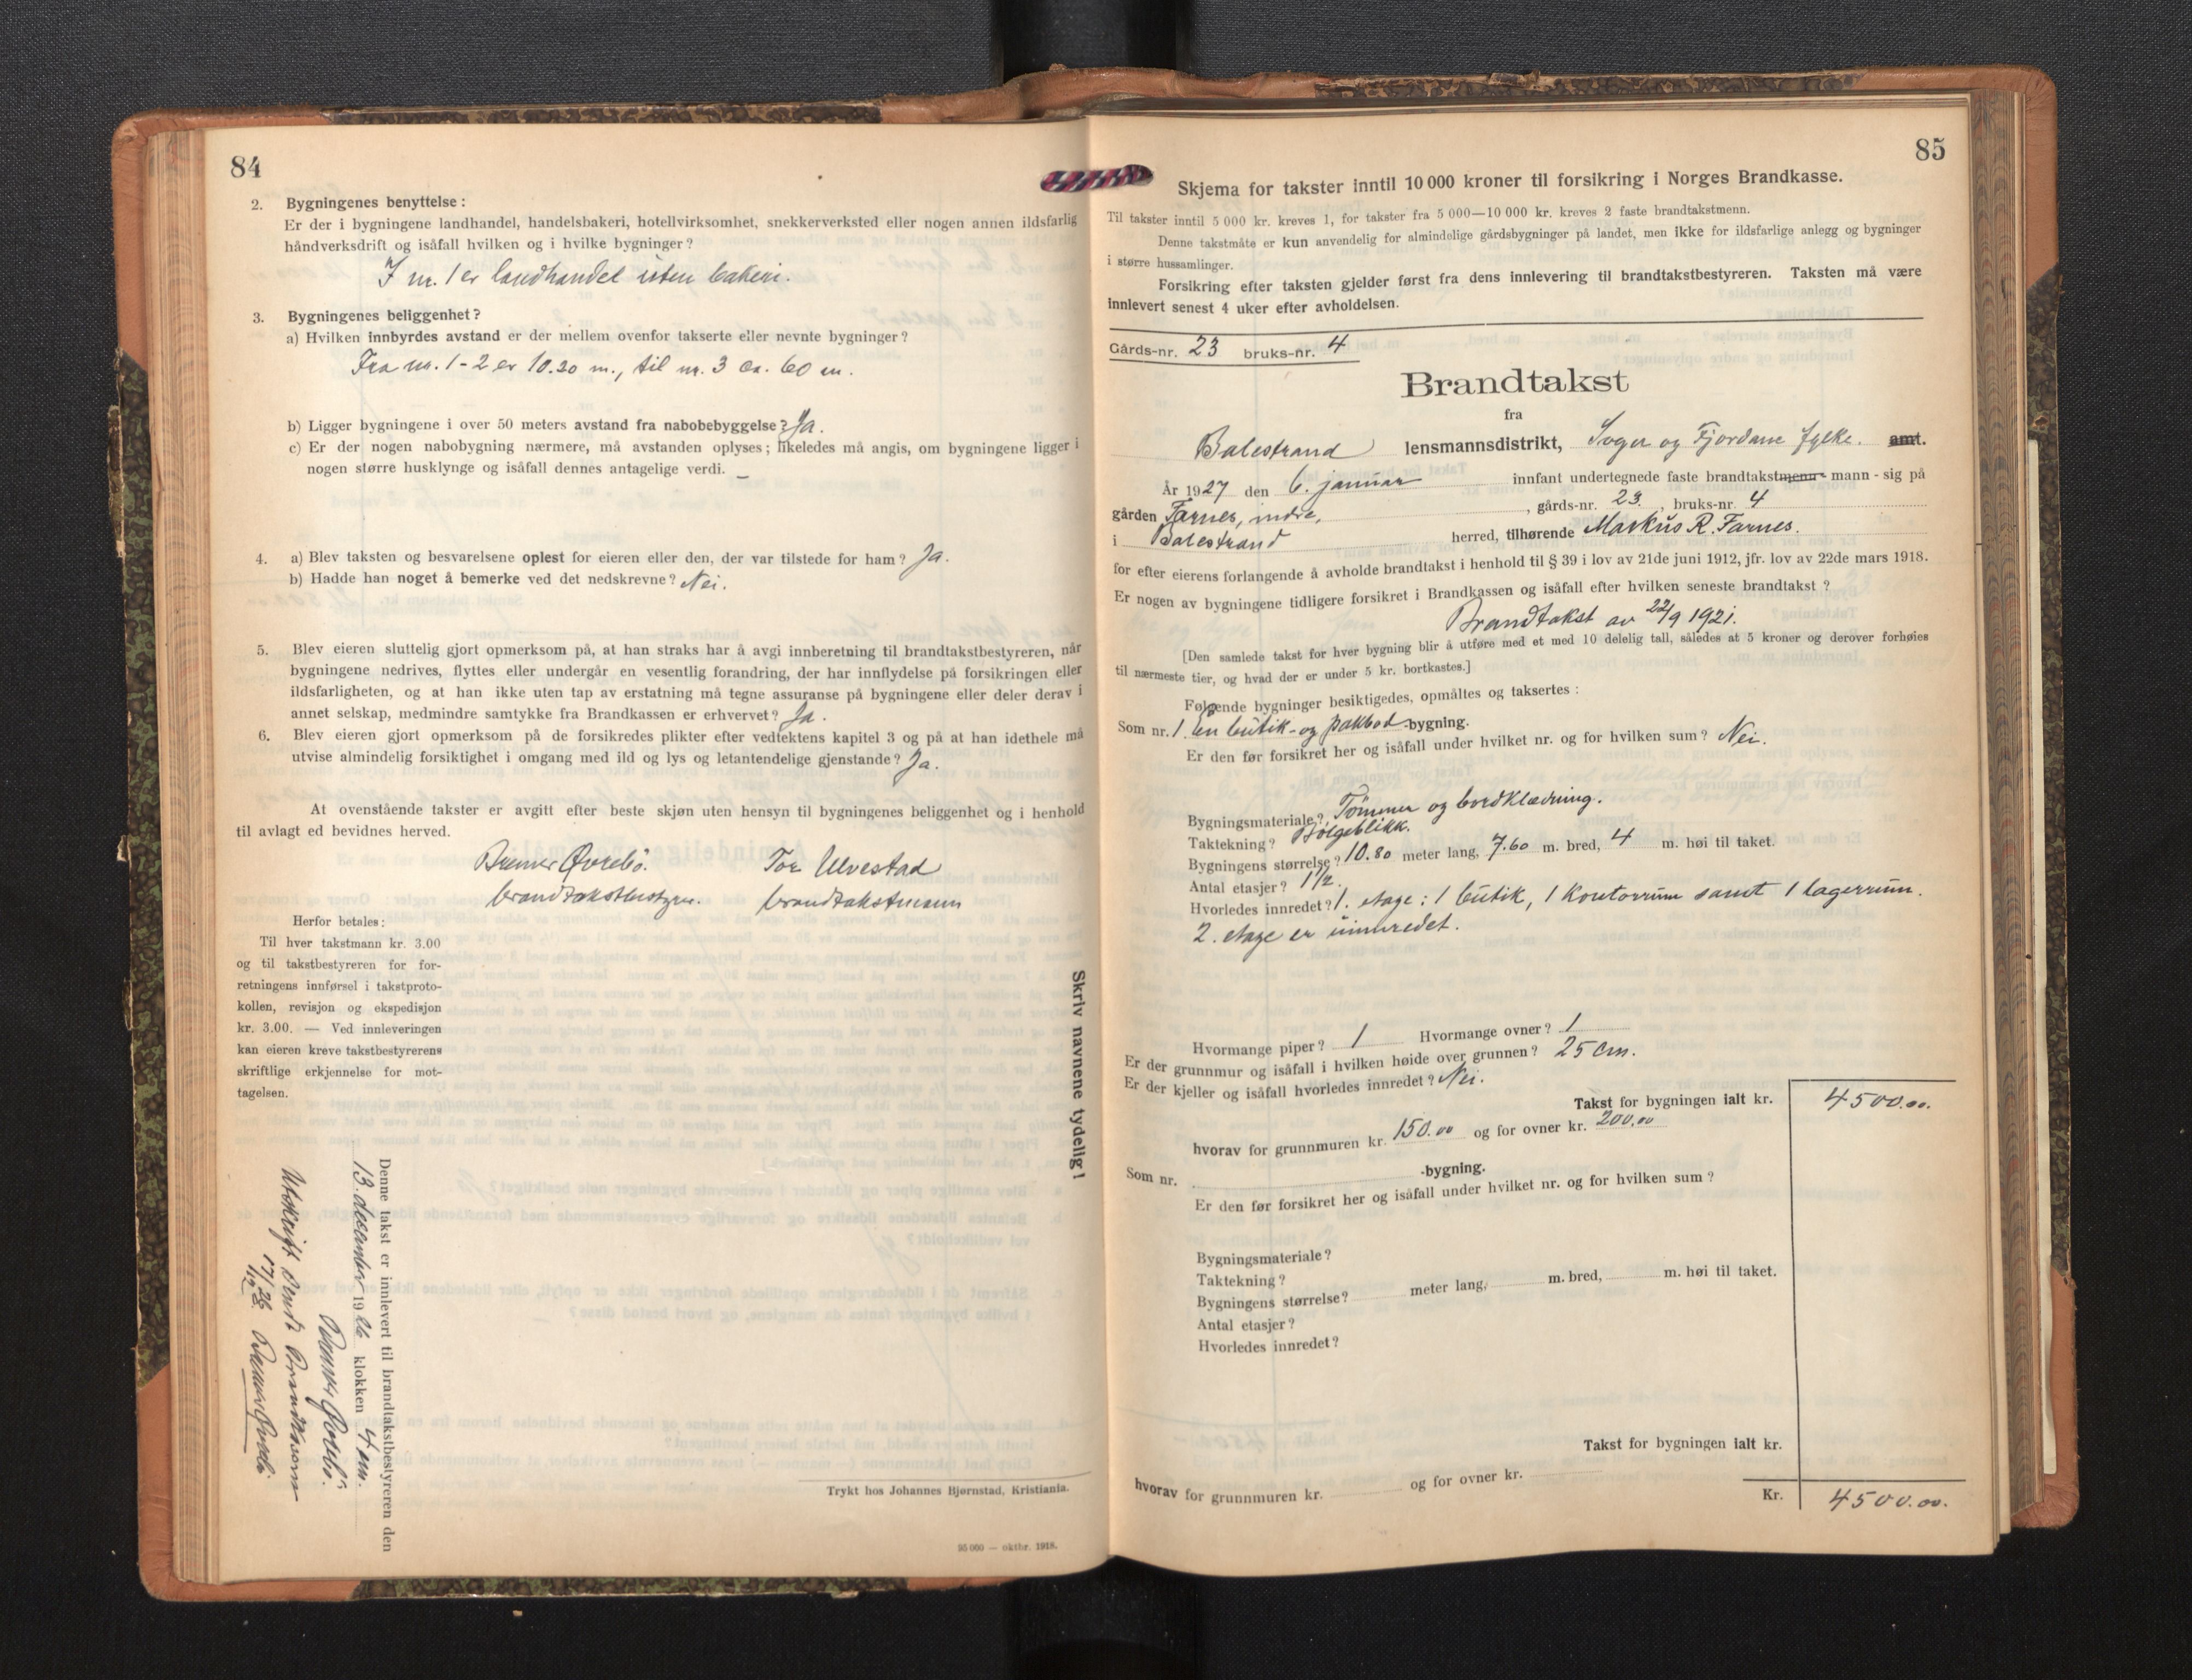 84
2. Bygningenes benyttelse:
Er der i bygningene landhandel, handelsbakeri, hotellvirksomhet, snekkerverksted eller nogen annen ildsfarlig
håndverksdrift og isåfall hvilken og i hvilke bygninger?
I nr. 1 er landhandel uten bakeri.
3. Bygningenes beliggenhet?
a) Hvilken innbyrdes avstand er der mellem ovenfor takserte eller nevnte bygninger?
Fra nr. 1-2 er 10.30 m., til nr. 3 ca. 60 m.
b) Ligger bygningene i over 50 meters avstand fra nabobebyggelse? Ja.
c) Er der nogen nabobygning nærmere, må avstanden oplyses; likeledes må angis, om bygningene ligger i
nogen større husklynge og isåfall dennes antagelige verdi. –
4. a) Blev taksten og besvarelsene oplest for eieren eller den, der var tilstede for ham? Ja.
b) Hadde han noget å bemerke ved det nedskrevne? Nei.
5. Blev eieren sluttelig gjort opmerksom på, at han straks har å avgi innberetning til brandtakstbestyreren, når
bygningene nedrives, flyttes eller undergår en vesentlig forandring, der har innflydelse på forsikringen eller
ildsfarligheten, og at han ikke uten tap av erstatning må tegne assuranse på bygningene eller deler derav i
annet selskap, medmindre samtykke fra Brandkassen er erhvervet? Ja.
6. Blev eieren gjort opmerksom på de forsikredes plikter efter vedtektens kapitel 3 og på at han idethele må
utvise almindelig forsiktighet i omgang med ild og lys og letantendelige gjenstande? Ja.
At ovenstående takster er avgitt efter beste skjøn uten hensyn til bygningenes beliggenhet og i henhold
til avlagt ed bevidnes herved.
Øvrebö. Tor Ulvestad
brandtakstbestyrer. brandtakstmann
Herfor betales:
Til hver takstmann kr. 3.00
og til takstbestyreren for for-
retningens innførsel i takstproto-
kollen, revisjon og ekspedisjon
kr. 3.00. — Ved innleveringen
kan eieren kreve takstbestyrerens
skriftlige erkjennelse for mot-
tagelsen.
Skriv navnene tydelig!
Denne takst er innlevert til brandtakstbestyreren den
13. december 1926 klokken 4 em.
Utskrift sendt
17/12 26.
Trykt hos Johannes Bjørnstad, Kristiania.
95 000 — oktbr. 1918.
85
Skjema for takster inntil 10 000 kroner til forsikring i Norges Brandkasse.
Til takster inntil 5 000 kr. kreves 1, for takster fra 5 000—10 000 kr. kreves 2 faste brandtakstmenn.
Denne takstmåte er kun anvendelig for almindelige gårdsbygninger på landet, men ikke for ildsfarlige anlegg og bygninger
i større hussamlinger.
Forsikring efter taksten gjelder først fra dens innlevering til brandtakstbestyreren. Taksten må være
innlevert senest 4 uker efter avholdelsen.
Gårds-nr. 23 bruks-nr. 4
Brandtakst
fra
Balestrand lensmannsdistrikt, Sogn og Fjordane fylke. amt.
År 1927 den 6. januar innfant undertegnede faste brandtakstmenn - mann - sig på
gården Farnes, indre, , gårds-nr. 23. , bruks-nr. 4
i Balestrand herred, tilhørende Markus R. Farnes.
for efter eierens forlangende å avholde brandtakst i henhold til § 39 i lov av 21de juni 1912, jfr. lov av 22de mars 1918.
Er nogen av bygningene tidligere forsikret i Brandkassen og isåfall efter hvilken seneste brandtakst?
Brandtakst av 22/9 1921.
[Den samlede takst for hver bygning blir å utføre med et med 10 delelig tall, således at 5 kroner og derover forhøies
til nærmeste tier, og hvad der er under 5 kr. bortkastes.]
Følgende bygninger besiktigedes, opmåltes og taksertes:
Som nr. 1. En butik- og pakbod-bygning.
Er den før forsikret her og isåfall under hvilket nr. og for hvilken sum? Nei.
Bygningsmateriale? Tömmer og bordklædning.
Taktekning? Bölgeblikk.
Bygningens størrelse? 10.80 meter lang, 7.60 m. bred, 4 m. høi til taket.
Antal etasjer? 1 1/2.
Hvorledes innredet? 1. etage: 1 butik, 1 kontorrum samt 1 lagerrum.
2. etage er uinnredet.
Hvormange piper? 1 Hvormange ovner? 1
Er der grunnmur og isåfall i hvilken høide over grunnen? 25 cm.
Er der kjeller og isåfall hvorledes innredet? Nei.
Takst for bygningen ialt kr. 4500.00.
hvorav for grunnmuren kr. 150.00 og for ovner kr. 200.00
Som nr. -bygning.
Er den før forsikret her og isåfall under hvilket nr. og for hvilken sum?
Bygningsmateriale?
Taktekning?
Bygningens størrelse? meter lang, m. bred, m. høi til taket.
Antal etasjer?
Hvorledes innredet?
Takst for bygningen ialt kr.
hvorav for grunnmuren kr. og for ovner kr.
Kr. 4500.00.